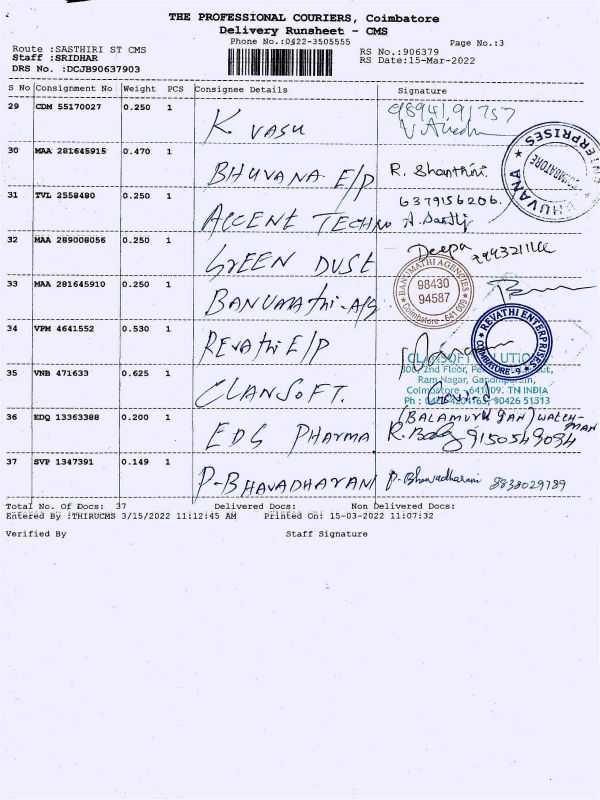 THE PROFESSIONAL COURIERS, Coimbatore
Delivery Runsheet - CMS
Phone No.:0422-3505555
Page No.:3
Route :SASTHIRI ST CMS
Staff :SRIDHAR
DRS No. :DCJB90637903
RS No.:906379
RS Date:15-Mar-2022
S No Consignment No Weight PCS Consignee Details Signature
29 CDM 55170027 0.250 1 K VASU
30 MAA 281645915 0.470 1 BHUVANA E/P R. Shanthini.
BHUVANA ENTERPRISES COIMBATORE
31 TVL 2558480 0.250 1 ACCENT TECHNO 6379156206.
32 MAA 289008056 0.250 1 GREEN DUST Deepa
33 MAA 281645910 0.250 1 BANUMAthi-A/g
BANUMATHI AGENCIES
98430
94587
Coimbatore - 641 009
34 VPM 4641552 0.530 1 REVAthi E/P
REVATHI ENTERPRISES
COIMBATORE-9
35 VNB 471633 0.625 1 CLANSOFT.
2nd Floor,
Ram Nagar,
Coimbatore - 641009. TN INDIA
90426 51513
36 EDQ 13363388 0.200 1 EDS PHARMA
(BALAMURUGAN) WATCH-
MAN
9150549034
37 SVP 1347391 0.149 1 P-BHAVADHARANI P-Bhavadharani 8838029789
Total No. Of Docs: 37 Delivered Docs: Non Delivered Docs:
Entered By :THIRUCMS 3/15/2022 11:12:45 AM Printed On: 15-03-2022 11:07:32
Verified By Staff Signature